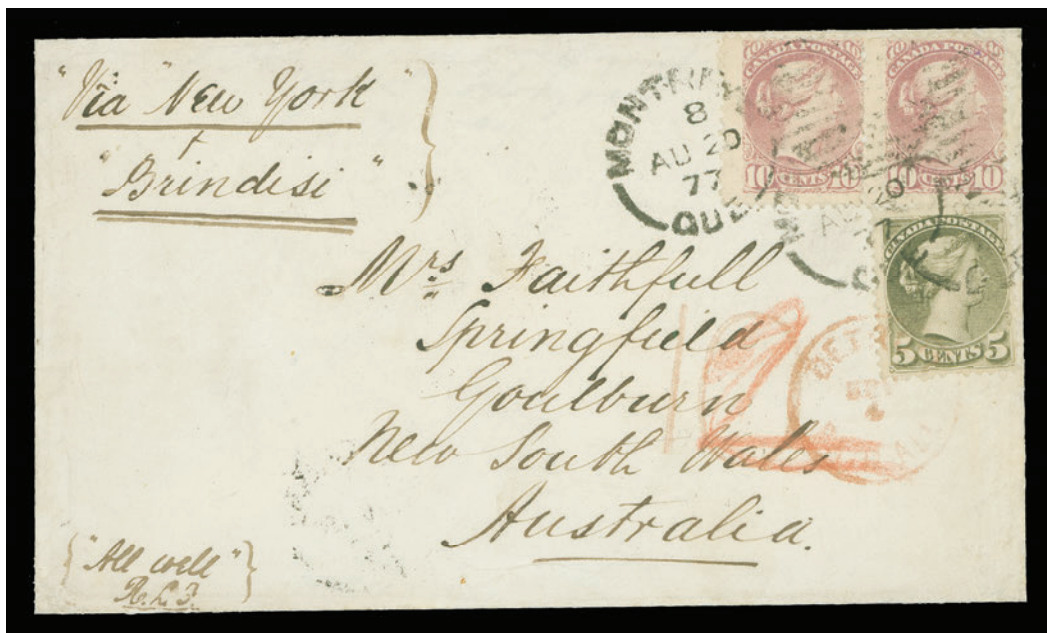 "Via New York"
+
"Brindisi"
MONTREAL
8
AU 20
77
QUE
CANADA POSTAGE
10 CENTS 10
CANADA POSTAGE
10 CENTS 10
AU 20
77
CANADA POSTAGE
5 CENTS 5
Mrs Faithfull
Springfield
Goulburn
New South Wales
Australia.
DET
"All well"
R.L.F.